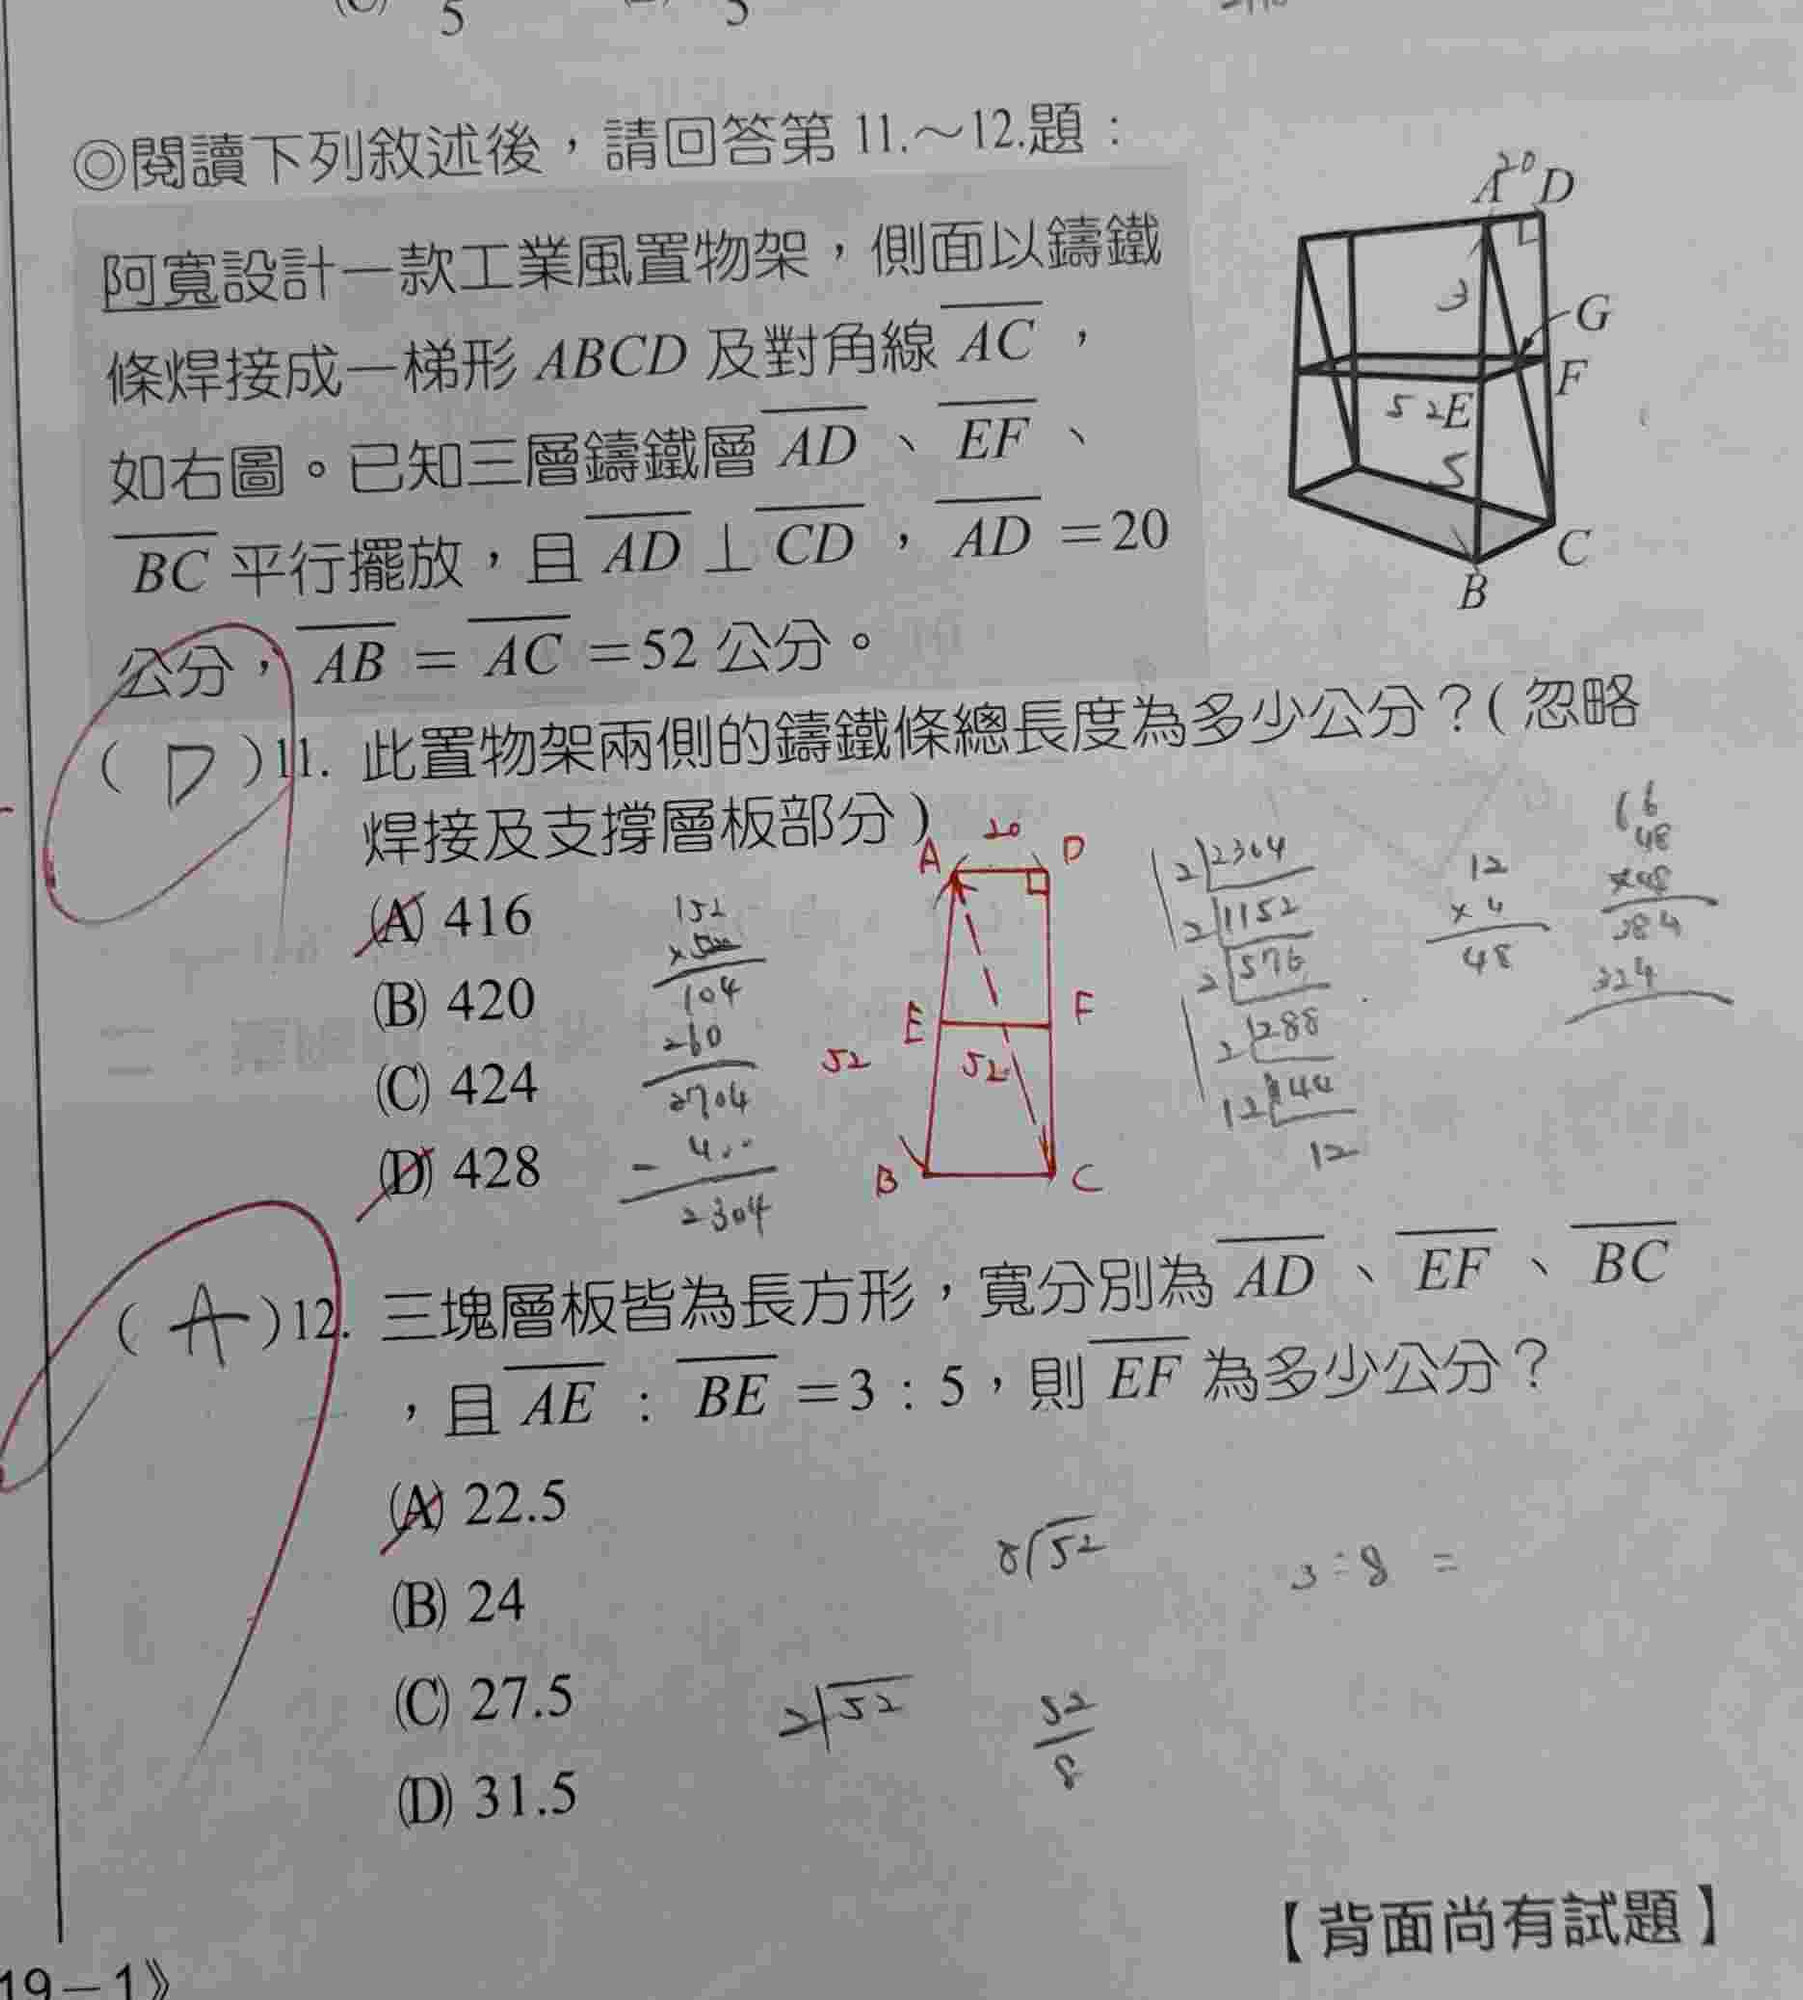 5
◎閱讀下列敘述後，請回答第 11.～12.題：
阿寬設計一款工業風置物架，側面以鑄鐵
條焊接成一梯形 ABCD 及對角線 AC，
如右圖。已知三層鑄鐵層 AD、EF、
BC 平行擺放，且 AD⊥CD，AD=20
公分，AB=AC=52 公分。
A 20 D
3
G
F
52 E
5
C
B
( D )11. 此置物架兩側的鑄鐵條總長度為多少公分？(忽略
焊接及支撐層板部分)
(A) 416
(B) 420
(C) 424
(D) 428
152
104
260
2704
2304
A 20 D
E F
52 52
B C
2 2304
2 1152
2 576
2 288
12 144
12
12
×4
48
48
×48
384
324
( A )12. 三塊層板皆為長方形，寬分別為 AD、EF、BC
，且 AE：BE=3：5，則 EF 為多少公分？
(A) 22.5
(B) 24
(C) 27.5
(D) 31.5
8 52
3÷8=
2 52
52
8
【背面尚有試題】
19－1》